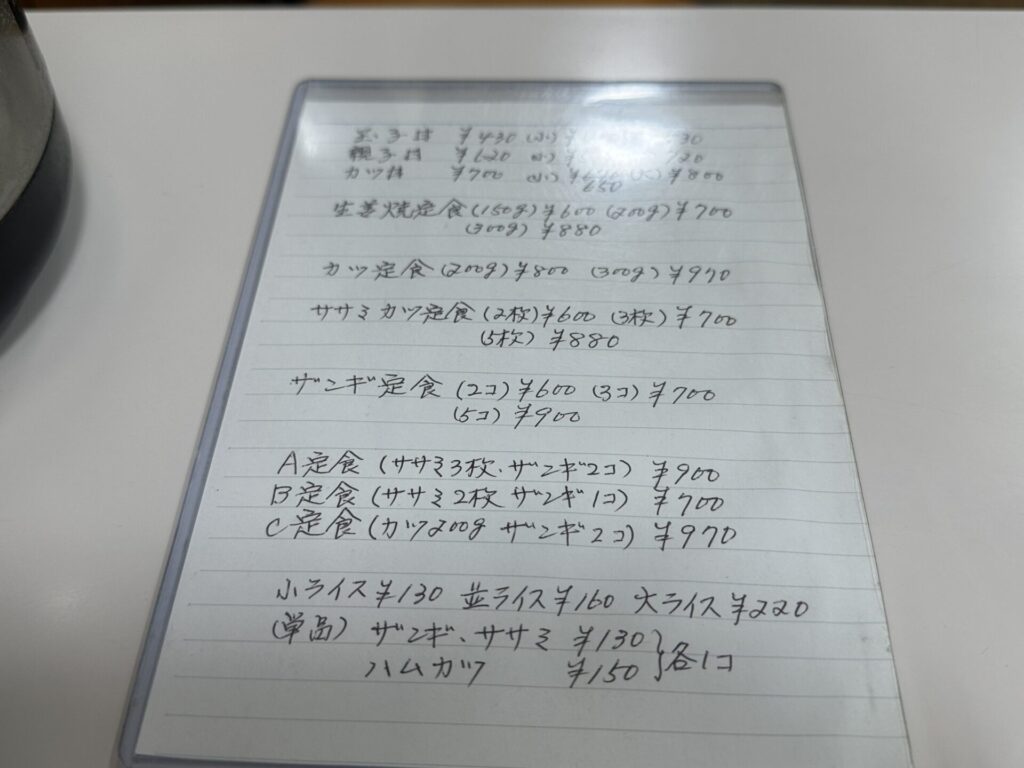 玉子丼 ¥430 (小) 30
親子丼 ¥620 (小) 720
カツ丼 ¥700 (小) (大) ¥800
650
生姜焼定食 (150g) ¥600 (200g) ¥700
(300g) ¥880
カツ定食 (200g) ¥800 (300g) ¥970
ササミカツ定食 (2枚) ¥600 (3枚) ¥700
(5枚) ¥880
ザンギ定食 (2コ) ¥600 (3コ) ¥700
(5コ) ¥900
A定食 (ササミ3枚、ザンギ2コ) ¥900
B定食 (ササミ2枚 ザンギ1コ) ¥700
C定食 (カツ200g ザンギ2コ) ¥970
小ライス ¥130 並ライス ¥160 大ライス ¥220
(単品) ザンギ、ササミ ¥130 } 各1コ
ハムカツ ¥150